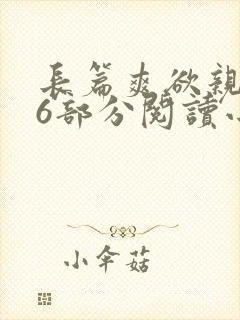 長篇爽欲親
6部分閱讀小
小傘菇